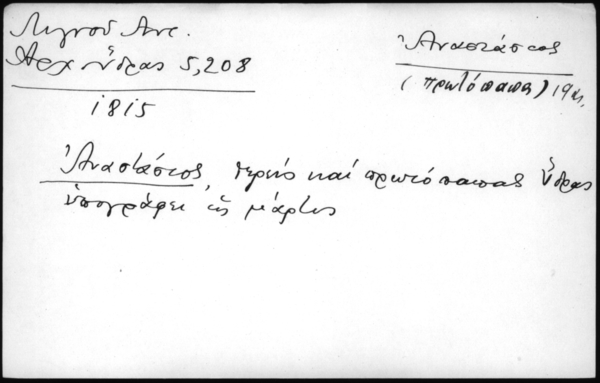 Λιγνοῦ Ἀντ.
Ἀρχ. Ὕδρας 5,208
1815
Ἀναστάσιος
(πρωτόπαπας) 19 αι.
Ἀναστάσιος, ἱερεὺς καὶ πρωτόπαπας Ὕδρας
ὑπογράφει ὡς μάρτυς